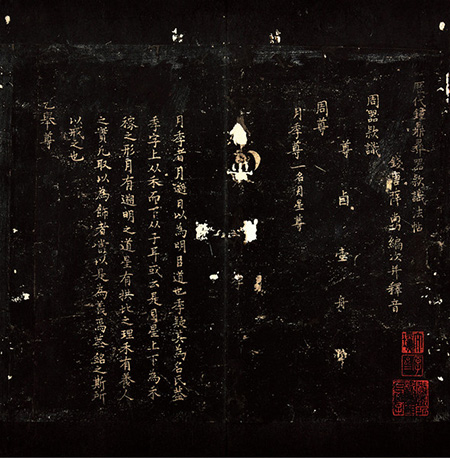 歷代鐘鼎彝器款識法帖
錢唐薛尚功編次并釋音
周器款識
尊 卣 壺 舟
周尊
月季尊一名月星尊
月季者月避日以為明目道也季疑其為名氏蓋
季字上从禾而下从子耳或云是月星上下為禾
稼之形月有遡明之道星有拱北之理禾有養人
之實凡取以為飾者當以是為義焉然銘之斯所
以戒之也
乙舉尊